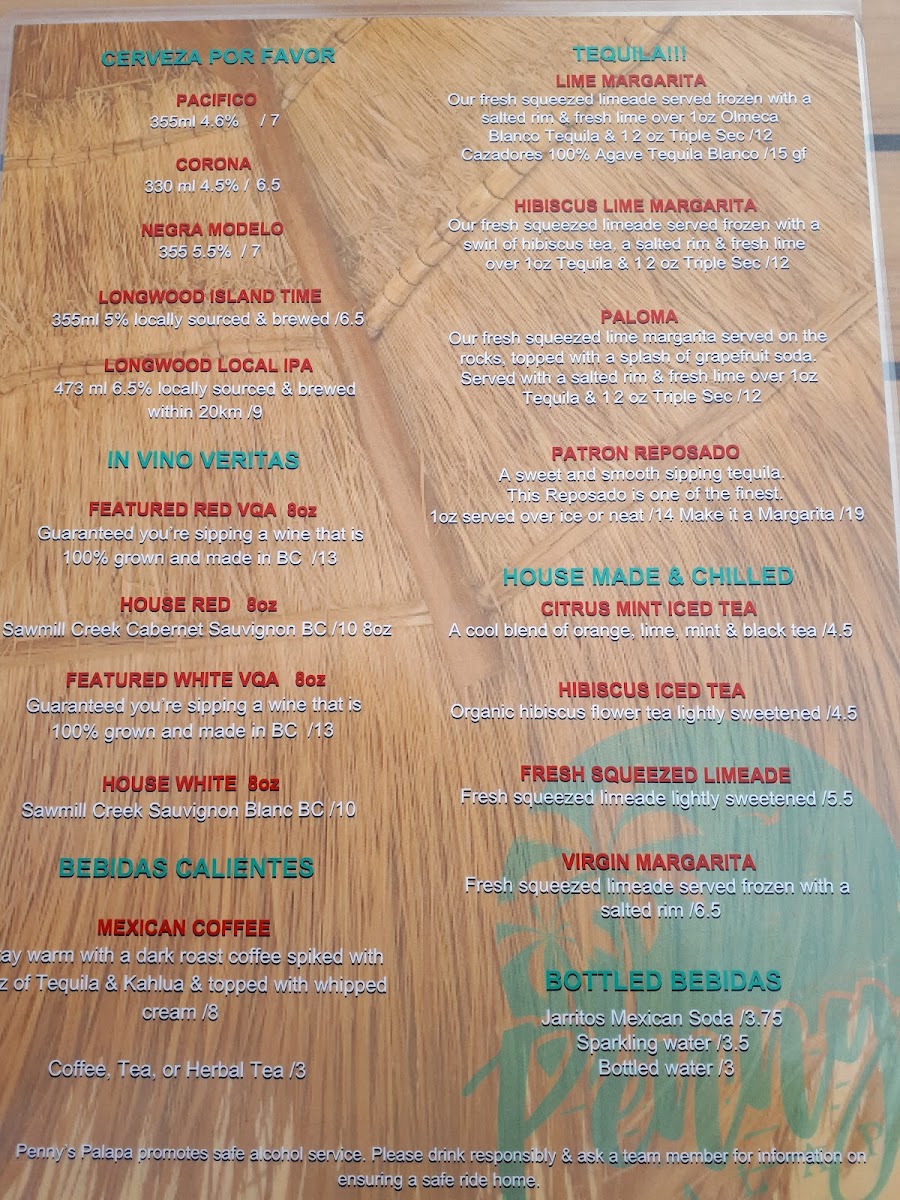 CERVEZA POR FAVOR
PACIFICO
355ml 4.6% / 7
CORONA
330 ml 4.5% / 6.5
NEGRA MODELO
355 5.5% / 7
LONGWOOD ISLAND TIME
355ml 5% locally sourced & brewed /6.5
LONGWOOD LOCAL IPA
473 ml 6.5% locally sourced & brewed
within 20km /9
IN VINO VERITAS
FEATURED RED VQA 8oz
Guaranteed you're sipping a wine that is
100% grown and made in BC /13
HOUSE RED 8oz
Sawmill Creek Cabernet Sauvignon BC /10 8oz
FEATURED WHITE VQA 8oz
Guaranteed you're sipping a wine that is
100% grown and made in BC /13
HOUSE WHITE 8oz
Sawmill Creek Sauvignon Blanc BC /10
BEBIDAS CALIENTES
MEXICAN COFFEE
ay warm with a dark roast coffee spiked with
z of Tequila & Kahlua & topped with whipped
cream /8
Coffee, Tea, or Herbal Tea /3
TEQUILA!!!
LIME MARGARITA
Our fresh squeezed limeade served frozen with a
salted rim & fresh lime over 1oz Olmeca
Blanco Tequila & 1 2 oz Triple Sec /12
Cazadores 100% Agave Tequila Blanco /15 gf
HIBISCUS LIME MARGARITA
Our fresh squeezed limeade served frozen with a
swirl of hibiscus tea, a salted rim & fresh lime
over 1oz Tequila & 1 2 oz Triple Sec /12
PALOMA
Our fresh squeezed lime margarita served on the
rocks, topped with a splash of grapefruit soda.
Served with a salted rim & fresh lime over 1oz
Tequila & 1 2 oz Triple Sec /12
PATRON REPOSADO
A sweet and smooth sipping tequila.
This Reposado is one of the finest.
1oz served over ice or neat /14 Make it a Margarita /19
HOUSE MADE & CHILLED
CITRUS MINT ICED TEA
A cool blend of orange, lime, mint & black tea /4.5
HIBISCUS ICED TEA
Organic hibiscus flower tea lightly sweetened /4.5
FRESH SQUEEZED LIMEADE
Fresh squeezed limeade lightly sweetened /5.5
VIRGIN MARGARITA
Fresh squeezed limeade served frozen with a
salted rim /6.5
BOTTLED BEBIDAS
Jarritos Mexican Soda /3.75
Sparkling water /3.5
Bottled water /3
Penny's
Penny's Palapa promotes safe alcohol service. Please drink responsibly & ask a team member for information on
ensuring a safe ride home.